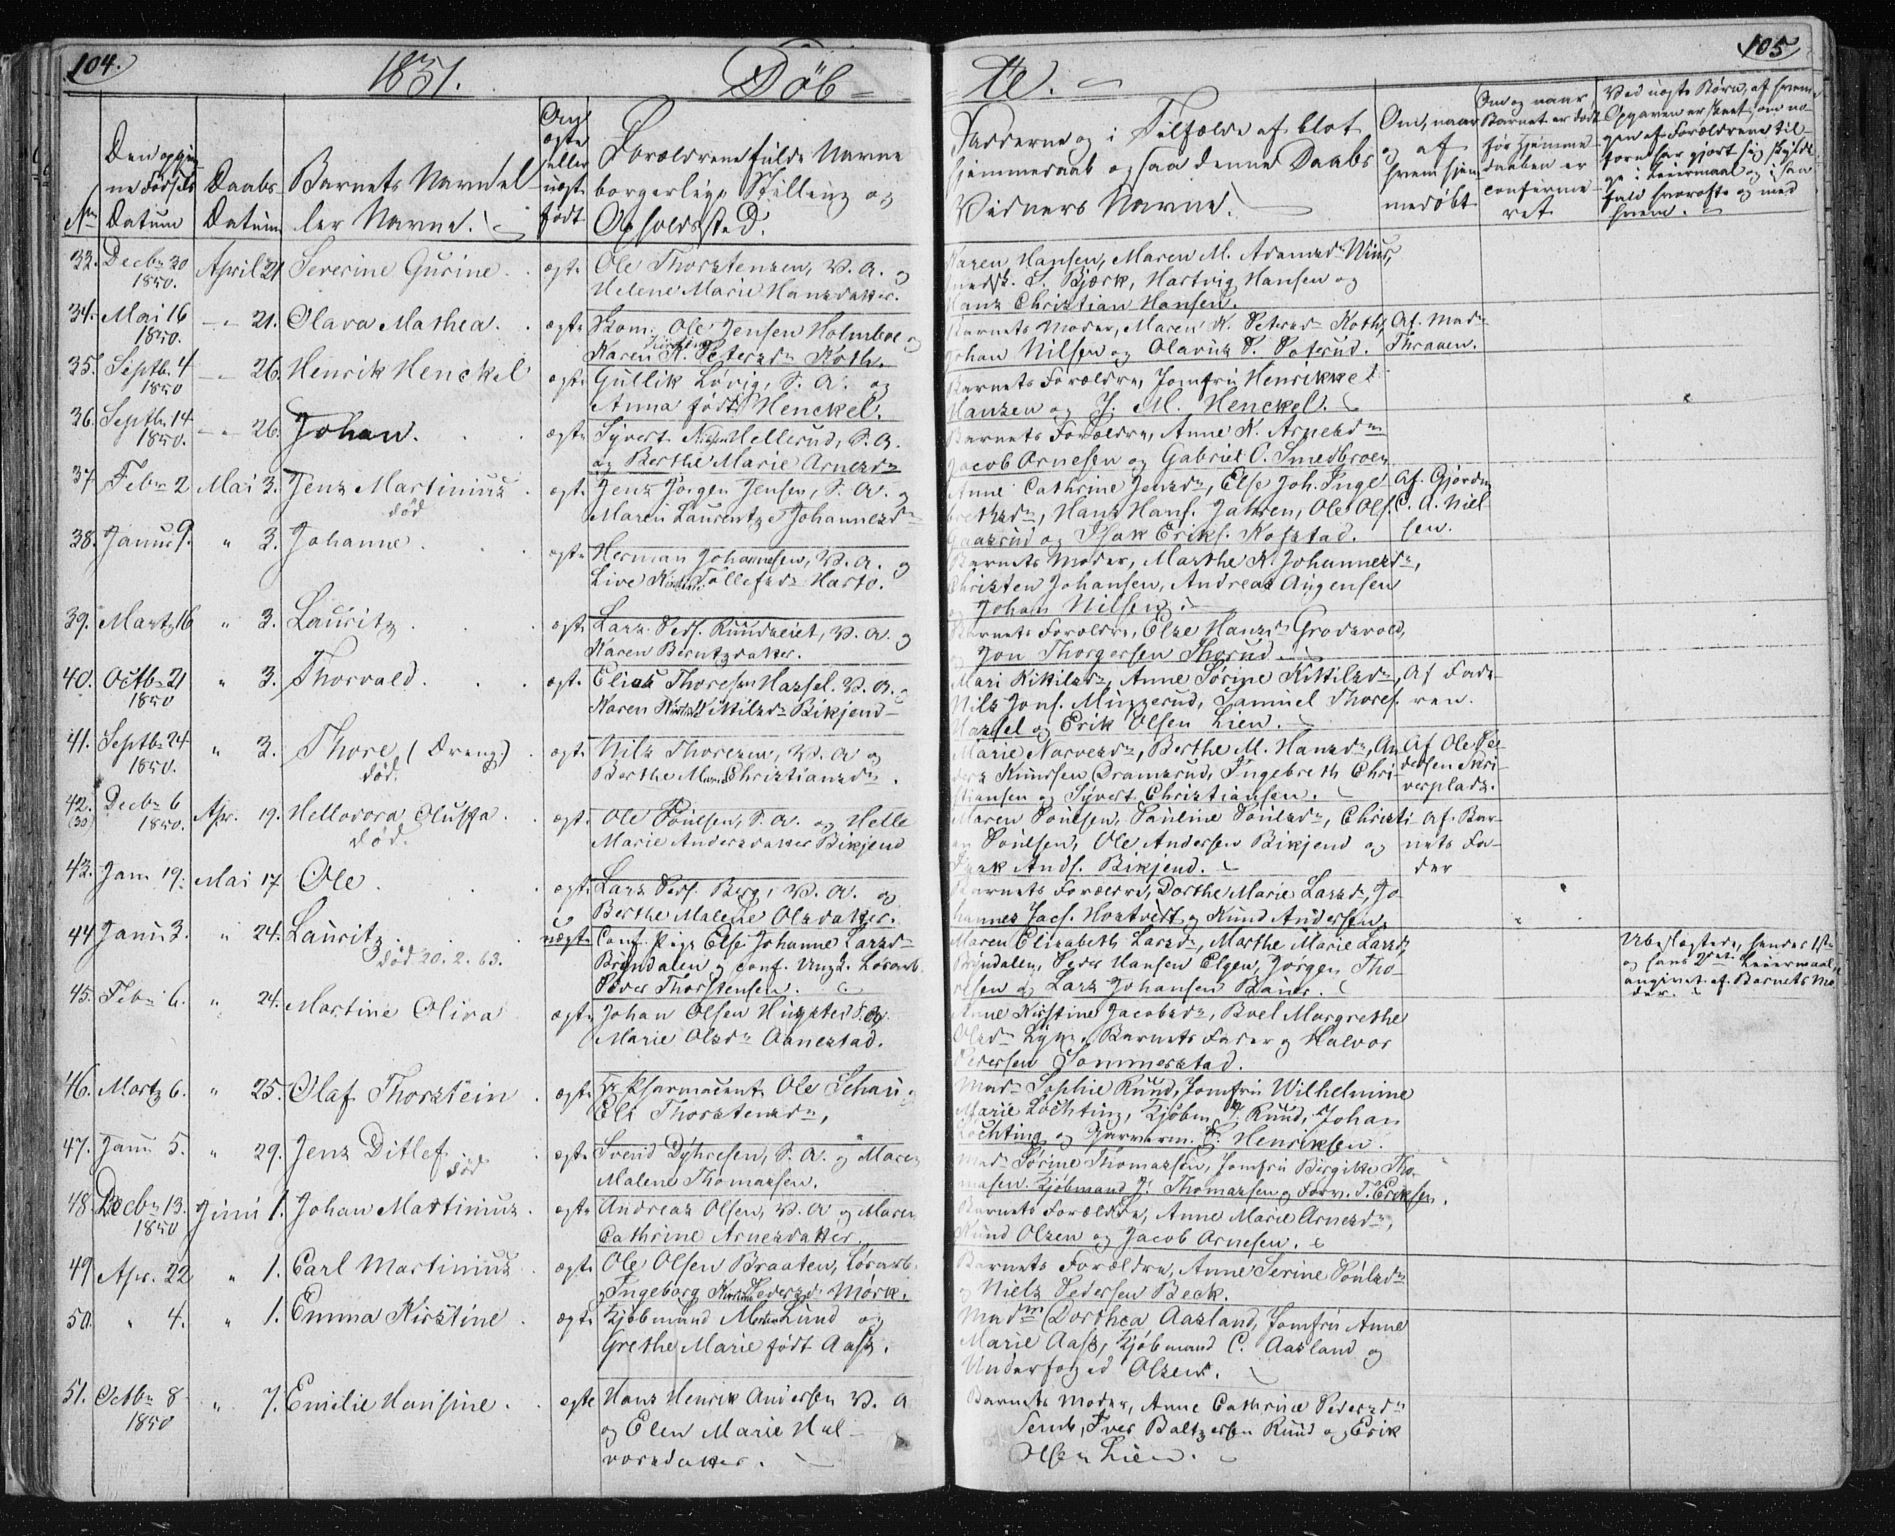 104.
1851.
Döb-
te.
105.
No
Den opgiv
ne Födsels
Datum
Daabs
Datum
Barnets Navn el
ler Navne.
Om
ægte
eller
uægte
födt
Forældrenes fulde Navne
borgerlige Stilling og
Opholdssted.
Fadderne og i Tilfælde af blot
hjemmedaab ogsaa denne Daabs
Vidners Navne.
Om, naar
og af
hvem hjem
medöbt
Om og naar
Barnet er dödt
för Hjemme
daaben er
conferme-
ret
Ved uægte Börn, af hvem
Opgaven er skeet, om no-
gen af Forældrene til-
forn har gjort sig skyldi
ge i Leiermaal og i saa
fald hvorofte og med
hvem.
33. Decbr 30
1850.
April 21
Severine Gurine.
ægte
Ole Thorstensen, V. A. og
Helene Marie Hansdatter.
Karen Hansen, Maren M. Adamsdr
S. Bjerk, Hartvig Hansen og
Hans Christian Hansen.
34. Mai 16
1850.
" 21.
Olava Mathea.
ægte
Skom. Ole Jensen Holmboe og
Karen K. Petersdr Koth.
Barnets Moder, Maren K. Petersdr Koth,
Johan Nilsen og Olavus P. Poterud.
Af Madm
Thraaen.
35. Septbr. 4
1850
" 26.
Henrik Henckel
ægte
Gullik Lövig, S. A. og
Anna födt Henckel.
Barnets Forældre, Jomfru Henrikke
Hansen og J. M. Henckel.
36. Septbr. 14
1850.
" 26.
Johan.
ægte
Syvert Hellerud, S. A.
og Berthe Marie Arnesdr
Barnets Forældre, Anne K. Arnesdr
Jacob Arnesen og Gabriel O. Smedbroen
37. Febr 2
Mai 3.
Jens Martinius
död
ægte
Jens Jörgen Jensen, S. A. og
Maren Laurentze Johannesdr
Anne Cathrine Jensdr, Else Joh. Inge
brethsdr, Hans Hans. Jahren, Ole Ols.
Gaasrud og Isak Eriks. Kopstad.
Af Gjordm
C. A. Niel
sen.
38. Januar 9.
" 3.
Johanne.
ægte
Herman Johannesen, V. A. og
Live Tollefsdr Harto.
Barnets Moder, Marthe K. Johannesdr,
Christen Johansen, Andreas Augensen
og Johan Nilsen.
39. Marts 16
" 3.
Lauritz.
ægte
Lars Peds. Ruudseiet, V. A. og
Karen Berntzdatter.
Barnets Forældre, Else Hansdr Grodsvold,
og Jon Thorgersen Skerud.
40. Octbr 21
1850
" 3.
Thorvald.
ægte
Elias Thoresen Hassel. V. A. og
Karen Kittilsdr Bikjend
Mari Kittilsdr, Anne Sörine Kittilsdr,
Nils Jons. Muggerud, Samuel Thores.
Hassel og Erik Olsen Lien.
Af Fade
ren.
41. Septbr 24
1850.
" 3.
Thore (Dreng.)
död.
ægte
Nils Thoresen, V. A og
Berthe Christiansdr.
Marie Narvesdr, Berthe M. Hansdr, An
ders Knudsen Dramsrud, Ingebreth Chri-
stiansen og Syvert Christiansen.
Af Ole Pe
dersen Skri
verplads.
42.
(30)
Decbr 6
1850.
Apr. 19.
Hellovora Olussa.
död.
ægte
Ole Poulsen, S. A. og Helle
Marie Andersdatter Bikjend
Maren Poulsen, Pauline Poulsdr, Christi
an Poulsen, Ole Andersen Bikjend og
Isak Ands. Bikjend.
Af Bar-
nets Fa-
der
43. Jan 19.
Mai 17.
Ole.
ægte
Lars Peds. Berg, V. A. og
Berthe Malene Olsdatter.
Barnets Forældre, Dorthe Marie Larsdr, Jo-
hannes Jacs. Hostvedt og Knud Andersen,
44. Janu. 3.
" 24.
Lauritz
död 20. 2. 63.
uægte
Conf. Pige Else Johanne Larsdr
Bryndalen og conf. Ungk. Lörarb.
Peder Thorstensen.
Maren Elisabeth Larsdr, Marthe Marie Larsdr
Bryndalen, Peder Hansen Elgen, Jörgen Tho-
rsen og Lars Johansen Bauer.
Ubeslægtede, hendes 1ste
og hans 2det Leiermaal,
angivet af Barnets Mo
der.
45. Febr 6.
" 24.
Martine Oliva
ægte
Johan Olsen Hugsted S. A.
Marie Olsdr Aanestad.
Anne Kirstine Jacobsdr, Boel Margrethe
Olsdr Lyng, Barnets Fader og Halvor
Pedersen Sommerstad.
46. Marts 6.
" 25.
Olaf Thorstein
ægte
Pharmaceut Ole Schau og
Eli Thorstensdr,
Madm Sophie Ruud, Jomfru Wilhelmine
Marie Lochting, Kjöbm. J. Ruud, Johan
Lochting og Garverm. C. Henriksen.
47. Janu 5.
" 29.
Jens Ditlef
död
ægte
Svend Dyhresen, S. A. og Maren
Malene Thomassen.
Madm Sörine Thomassen, Jomfru Birgitte Tho-
masen. Kjöbmand J. Thomassen og Forv. T. Eriksen.
48. Decbr 13.
1850
Juni 1.
Johan Martinius.
ægte
Andreas Olsen, V. A og Maren
Cathrine Arnesdatter.
Barnets Forældre, Anne Marie Arnesdr,
Knud Olsen og Jacob Arnesen.
49. Apr. 22
" 1.
Carl Martinius
ægte
Ole Olsen Braaten, Lörarb.
og Ingeborg Kirstine Pedersdr Mörk.
Barnets Forældre, Anne Serine Poulsdr
og Niels Pedersen Beck.
50. " 4.
" 1.
Emma Kirstine
ægte
Kjöbmand Morten Lund og
Grethe Marie födt Aass.
Madm Dorthea Aasland, Jomfru Anne
Marie Aass, Kjöbmand C. Aasland og
Underfoged Olsen.
51. Octbr 8
1850
" 7.
Emilie Hansine.
ægte
Hans Henrik Andersen V. A
og Elen Marie Hal-
vorsdatter.
Barnets Moder, Anne Cathrine Pedersdr
Semb, Iver Baltzersen Ruud og Erik
Olsen Lien.